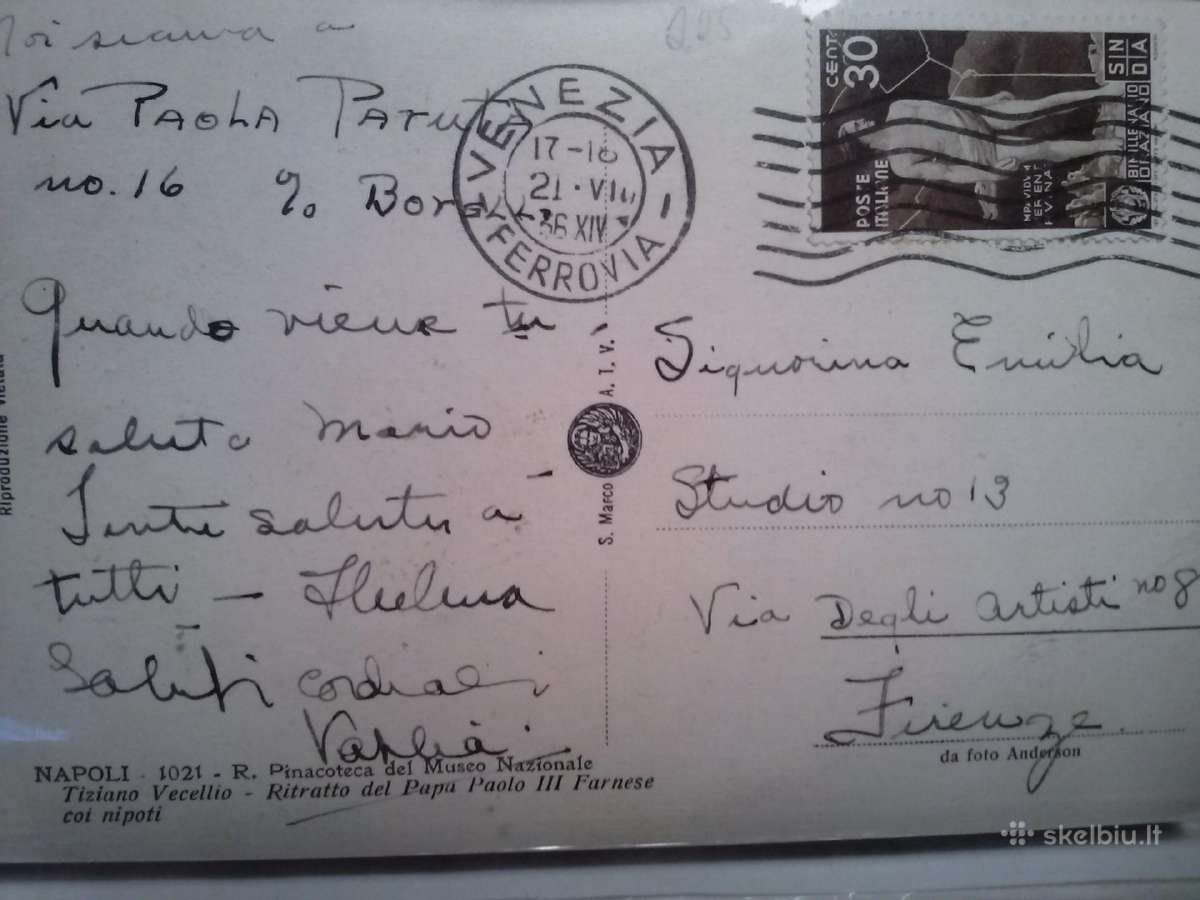 Noi siamo a
Via PAOLA
no. 16 c/o
Quando viene tu
saluta Mario
Tanti saluti a
tutti — Thelma
Saluti cordiali
225
VENEZIA
FERROVIA
17-18
21 · VII
36 XIV
CENT. 30
POSTE ITALIANE
BIMILLENARIO ORAZIANO
Signorina Emilia
Studio no 13
Via Degli Artisti no 8
Firenze
S. Marco A. T. V.
Riproduzione vietata
da foto Anderson
NAPOLI - 1021 - R. Pinacoteca del Museo Nazionale
Tiziano Vecellio - Ritratto del Papa Paolo III Farnese
coi nipoti
skelbiu.lt